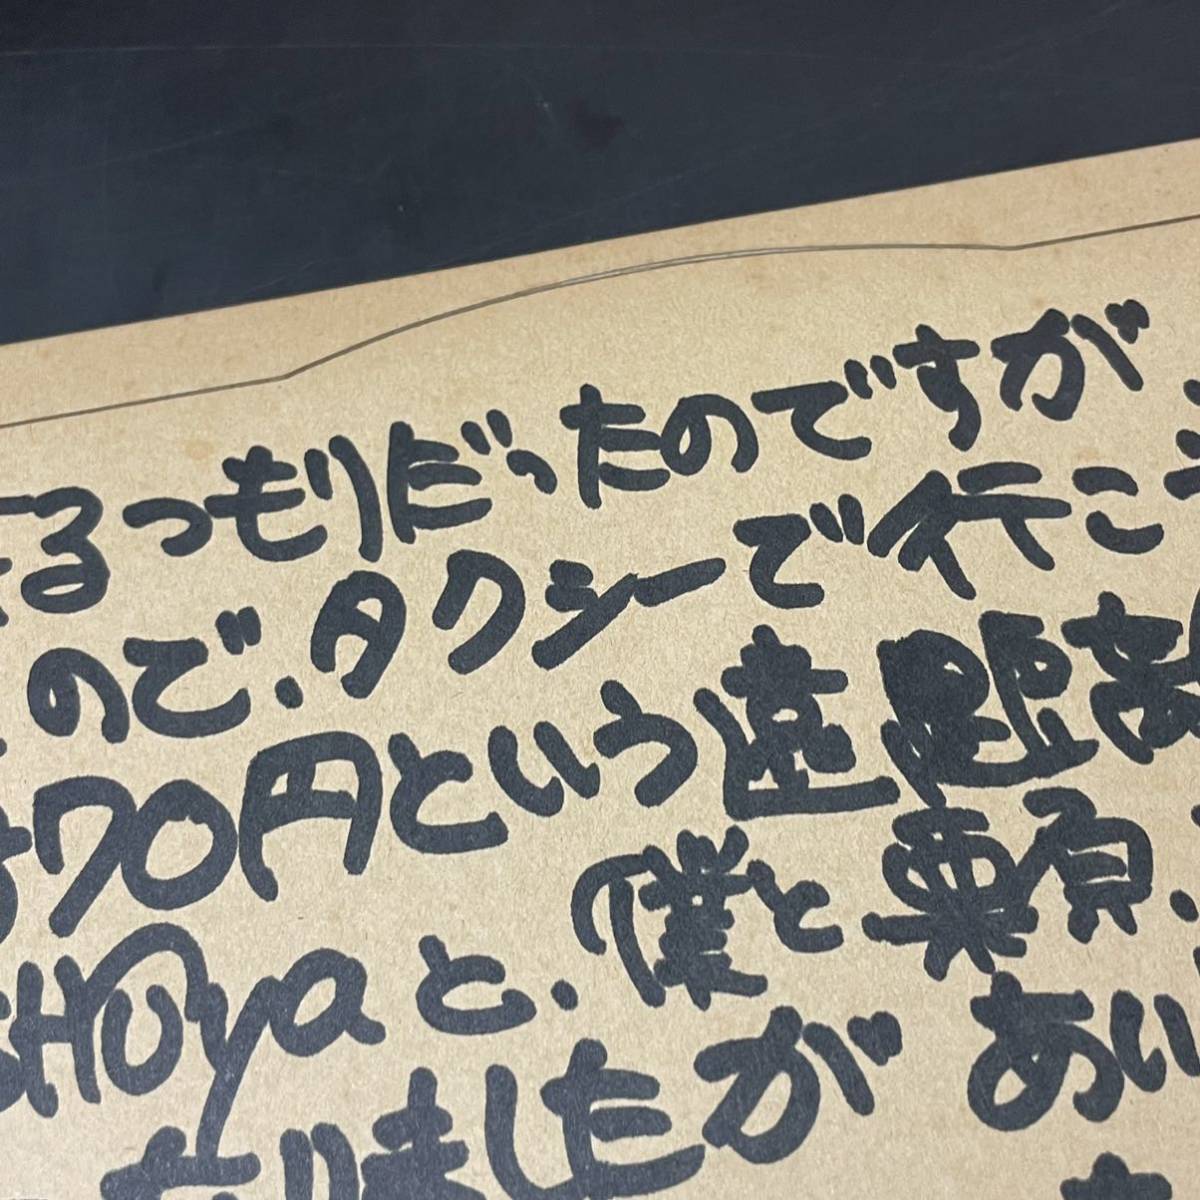 るつもりだったのですが
ので、タクシーで行こ
70円という遠距離
SHOyaと、僕と栗原、
なりましたが あい